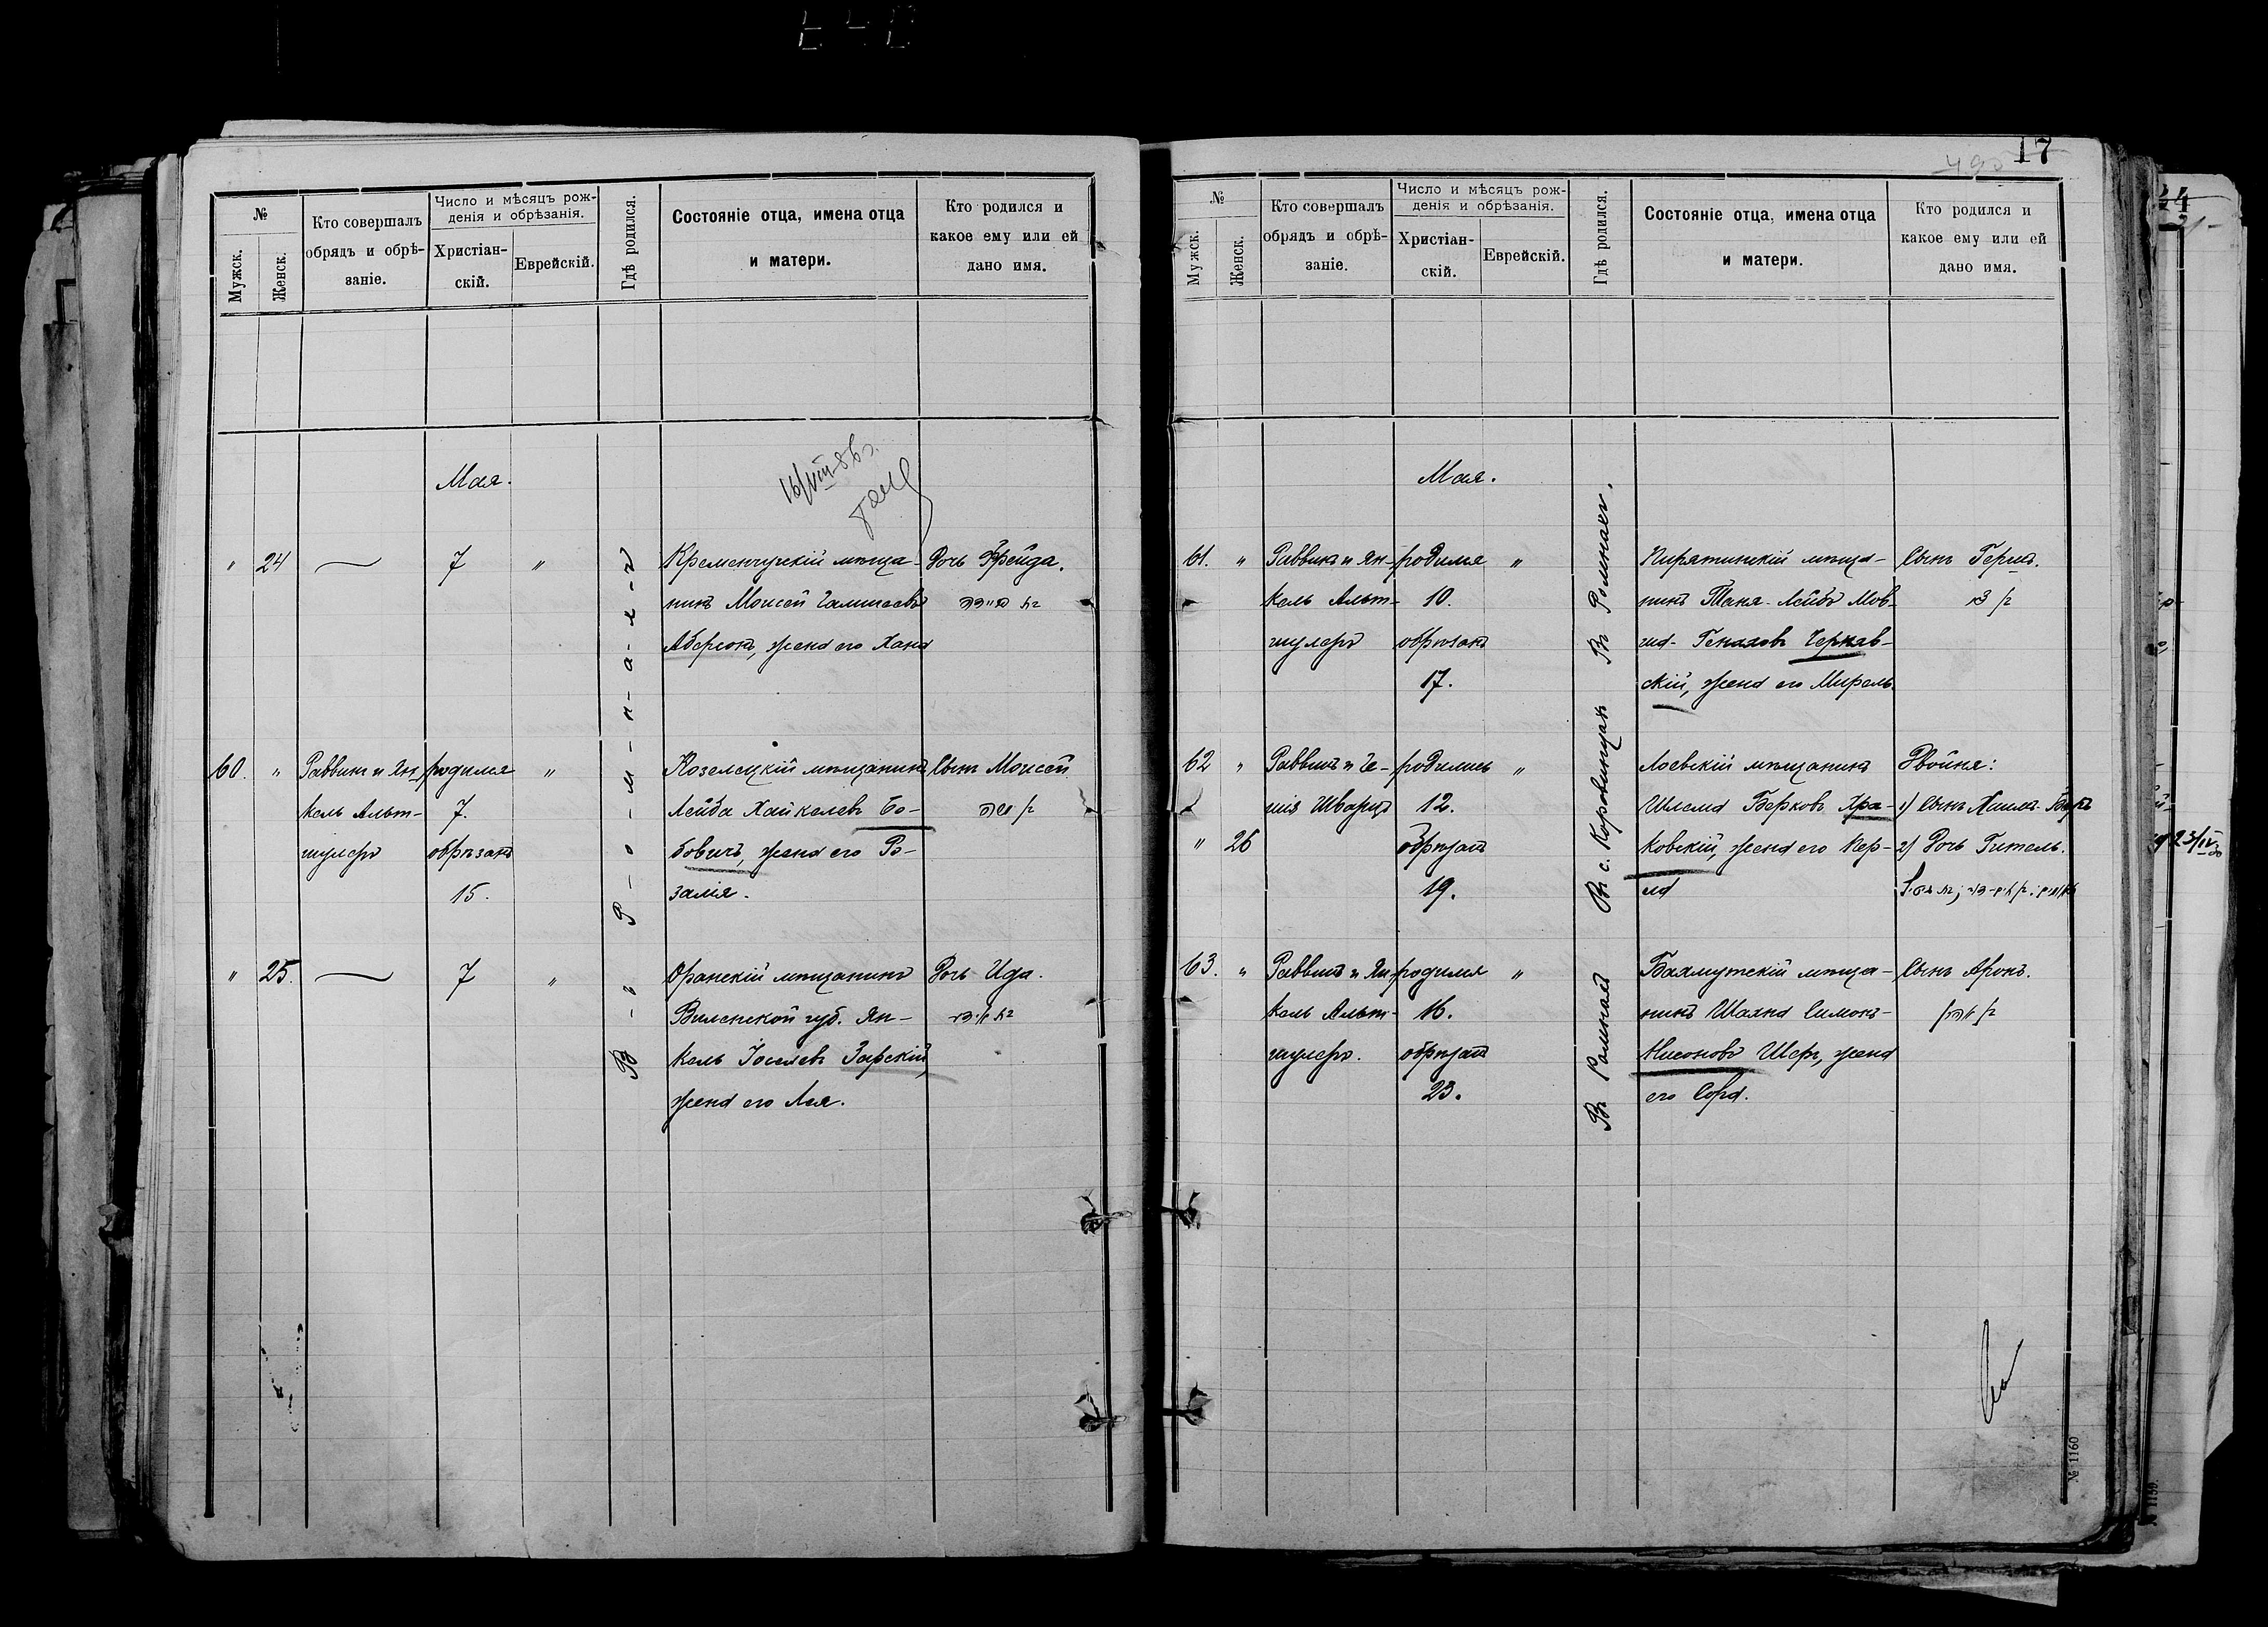 №
Кто совершалъ
обрядъ и обрѣ-
заніе.
Число и мѣсяцъ рож-
денія и обрѣзанія.
Христіан-
скій.
Еврейскій.
Гдѣ родился.
Состояніе отца, имена отца
и матери.
Кто родился и
какое ему или ей
дано имя.
Мужск.
Женск.
Мая.
" 24 7 "
Кременчугскій мѣща-
нинъ Моисей
Аберсонъ, жена его Хана
Дочь Фрейда.
60. "
Раввинъ и Ян-
кель Альт-
шулеръ
родился
7.
обрѣзанъ
15.
"
Козелецкій мѣщанинъ
Лейба Хайкелевъ Бо-
бовичъ, жена его Ро-
залія.
Сынъ Моисей
משה
" 25. 7 "
Оранскій мѣщанинъ
Виленской губ. Ян-
кель Іоселевъ Зарскій,
жена его Лея.
Дочь Ида.
В-ъ Р-о-м-н-а-х-ъ
17
№
Кто совершалъ
обрядъ и обрѣ-
заніе.
Число и мѣсяцъ рож-
денія и обрѣзанія.
Христіан-
скій.
Еврейскій.
Гдѣ родился.
Состояніе отца, имена отца
и матери.
Кто родился и
какое ему или ей
дано имя.
Мужск.
Женск.
Мая.
61. "
Раввинъ и Ян-
кель Альт-
шулеръ
родился
10.
обрѣзанъ
17.
"
Въ Ромнахъ.
Пирятинскій мѣща-
нинъ Таня-Лейба Мов-
ша- Геналовъ Черняв-
скій, жена его Мирель.
Сынъ Герцъ.
62 "
" 26
Раввинъ и Че-
Шварцъ
родились
12.
Обрѣзанъ
19.
"
Въ с. Коровинцахъ
Лоевскій мѣщанинъ
Шлема Берковъ Хра-
ковскій, жена его Кер-
ла
Двойня:
1) Сынъ Беръ
2) Дочь Гитель.
63. "
Раввинъ и Ян-
кель Альт-
шулеръ.
родился
16.
обрѣзанъ
23.
"
Въ Ромнахъ
Бахмутскій мѣща-
нинъ Шаяна Симонъ-
Нисоновъ Шеръ, жена
его Сора.
Сынъ Аронъ.
אהרן
№ 1160